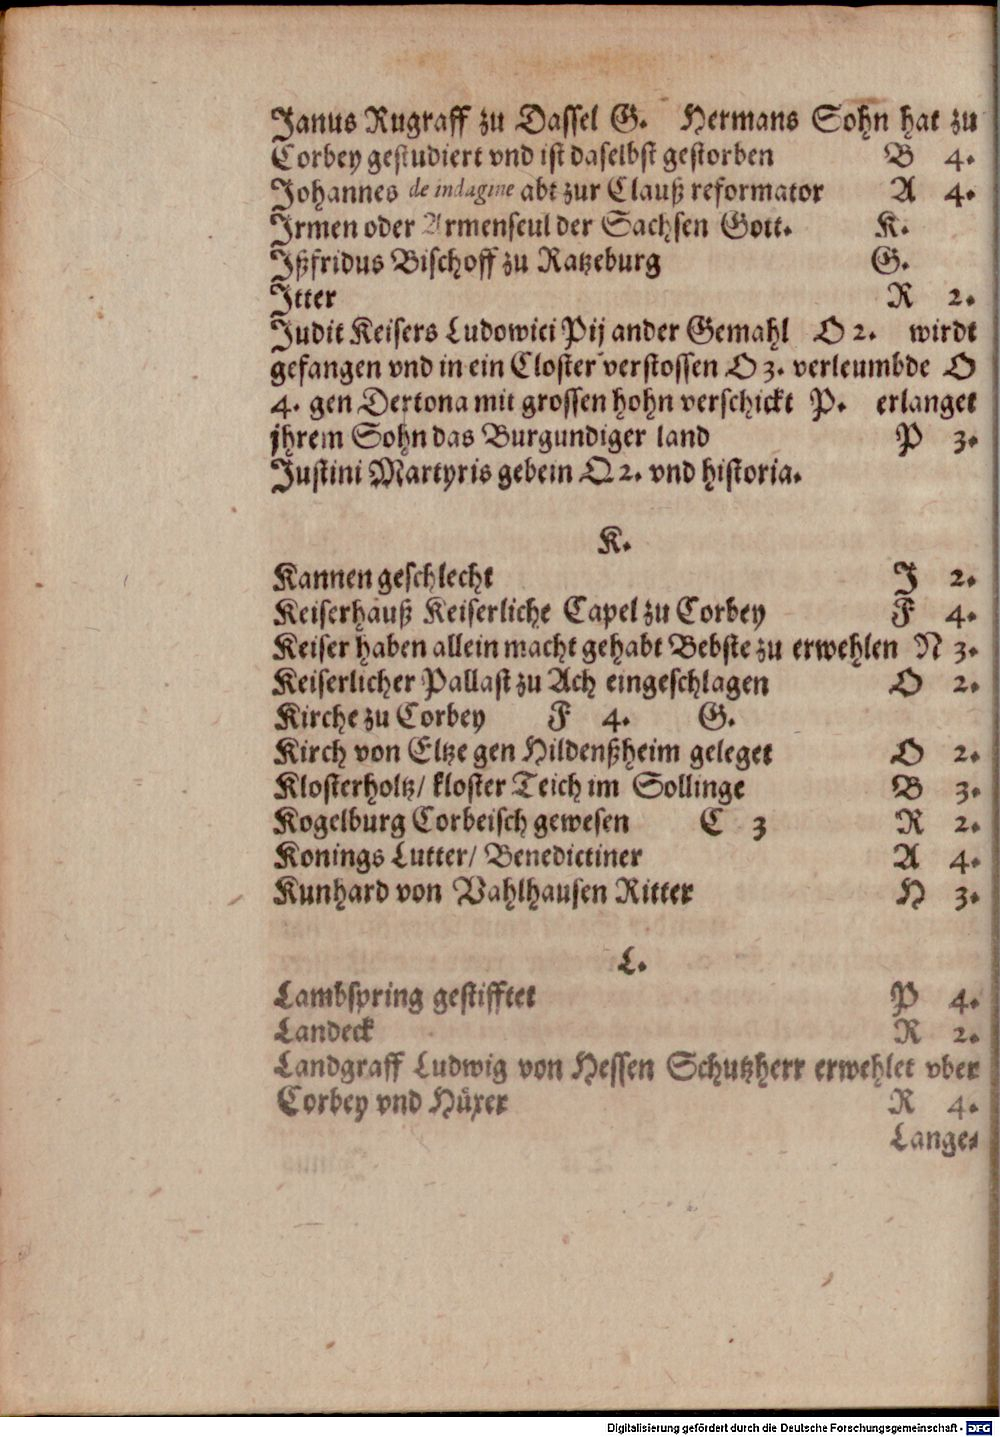 Janus Rugraff zu Dassel G. Hermans Sohn hat zu
Corbey gestudiert vnd ist daselbst gestorben B 4.
Johannes de indagine abt zur Clauß reformator A 4.
Irmen oder Armenseul der Sachsen Gott. K.
Ißfridus Bischoff zu Ratzeburg G.
Itter R 2.
Judit Keisers Ludowici Pij ander Gemahl O 2. wirdt
gefangen vnd in ein Closter verstossen O 3. verleumbde O
4. gen Dertona mit grossen hohn verschickt P. erlanget
jhrem Sohn das Burgundiger land P 3.
Justini Martyris gebein Q 2. vnd historia.
K.
Kannen geschlecht J 2.
Keiserhauß Keiserliche Capel zu Corbey F 4.
Keiser haben allein macht gehabt Bebste zu erwehlen N 3.
Keiserlicher Pallast zu Ach eingeschlagen O 2.
Kirche zu Corbey F 4. G.
Kirch von Eltze gen Hildenßheim geleget O 2.
Klosterholtz/ kloster Teich im Sollinge B 3.
Kogelburg Corbeisch gewesen C 3 R 2.
Konings Lutter/ Benedictiner A 4.
Kunhard von Vahlhausen Ritter H 3.
L.
Lambspring gestifftet P 4.
Landeck R 2.
Landgraff Ludwig von Hessen Schutzherr erwehlet vber
Corbey vnd Hüxer R 4.
Lange⸗
Digitalisierung gefördert durch die Deutsche Forschungsgemeinschaft - DFG